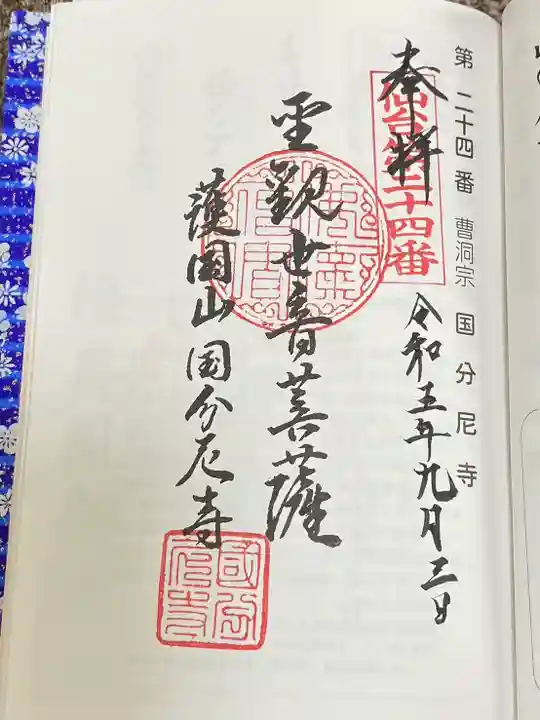 第二十四番 曹洞宗 国分尼寺
奉拝
仙台第二十四番
令和五年九月三日
聖観世音菩薩
護国山国分尼寺
國分尼寺